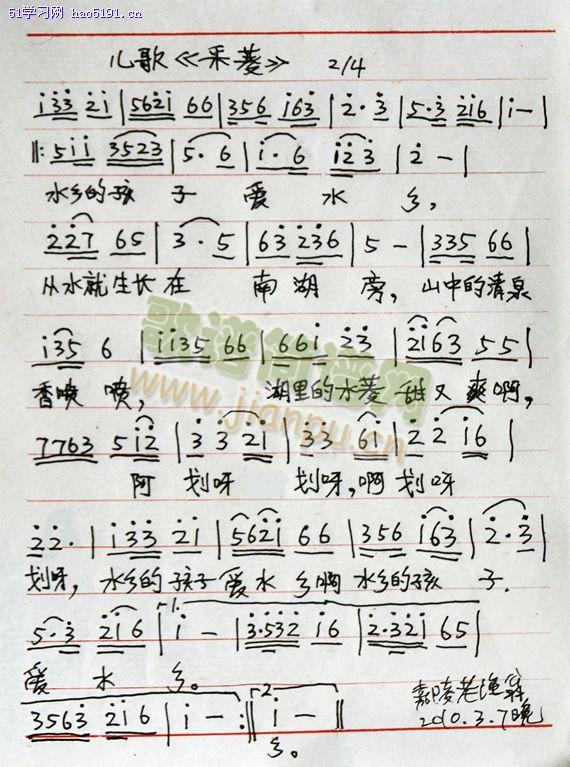 51学习网 hao5191.cn
儿歌《采菱》 2/4
i33 2i | 562i 66 | 356 i63 | 2·3 | 5·3 2i6 | i - |
‖: 5ii 3523 | 5·6 | i·6 | i23 | 2 - |
水乡的孩子 爱 水 乡,
227 65 | 3·5 | 63 236 | 5 - | 335 66 |
从水就生长在 南湖 旁, 山中的清泉
i35 6 | ii35 66 | 66i 23 | 2i63 55 |
香喷喷, 湖里的水菱甜又爽啊,
7763 5i2 | 3 32i | 33 6i | 2 2 i6 |
阿 划呀 划呀,啊划呀
22· | i33 2i | 562i 66 | 356 i63 | 2·3 |
划呀, 水乡的孩子爱水乡啊 水乡的孩 子.
5·3 2i6 | 1. i - | 3·532 i6 | 2·32i 65 |
爱 水 乡。
3563 2i6 | i - :‖ 2 i - ‖
乡。
嘉陵老渔翁
2010.3.7晚
歌谱简谱网
www.jianpu.cn